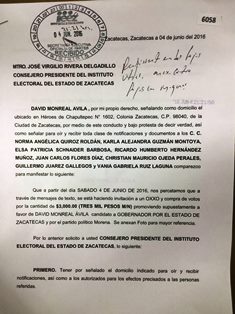 6058
Zacatecas, Zacatecas a 04 de junio de 2016
04 JUN. 2016
MTRO. JOSÉ VIRGILIO RIVERA DELGADILLO
CONSEJERO PRESIDENTE DEL INSTITUTO
ELECTORAL DEL ESTADO DE ZACATECAS
DAVID MONREAL ÁVILA, por mi propio derecho, señalando como domicilio el
ubicado en Héroes de Chapultepec N° 1602, Colonia Zacatecas, C.P. 98040, de la
Ciudad de Zacatecas, por medio de este conducto y bajo protesta de decir verdad, así
como señalar para oír y recibir toda clase de notificaciones y documentos a los C. C.
NORMA ANGÉLICA QUIROZ ROLDÁN, KARLA ALEJANDRA GUZMÁN MONTOYA,
ELSA PATRICIA SCHNAIDER BARBOSA, RICARDO HUMBERTO HERNÁNDEZ
MUÑOZ, JUAN CARLOS FLORES DÍAZ, CHRISTIAN MAURICIO OJEDA PERALES,
GUILLERMO JUAREZ GALLEGOS y VANIA GABRIELA RUIZ LAGUNA comparezco
para manifestar lo siguiente:
Que a partir del día SABADO 4 DE JUNIO DE 2016, nos percatamos que a
través de mensaje de texto, se está haciendo invitación a un OXXO y compra de
votos por la cantidad de $3,000.00 (TRES MIL PESOS M/N) promoviendo supuestamente a
favor de DAVID MONREAL ÁVILA, candidato a GOBERNADOR POR EL ESTADO DE
ZACATECAS y por el partido político Morena. Se anexan Foto para mayor referencia.
Por lo anterior solicito a usted CONSEJERO PRESIDENTE DEL INSTITUTO
ELECTORAL DEL ESTADO DE ZACATECAS, lo siguiente:
PRIMERO. Tener por señalado el domicilio indicado para oír y recibir
notificaciones, así como a los autorizados para los efectos precisados a las personas
referidas.